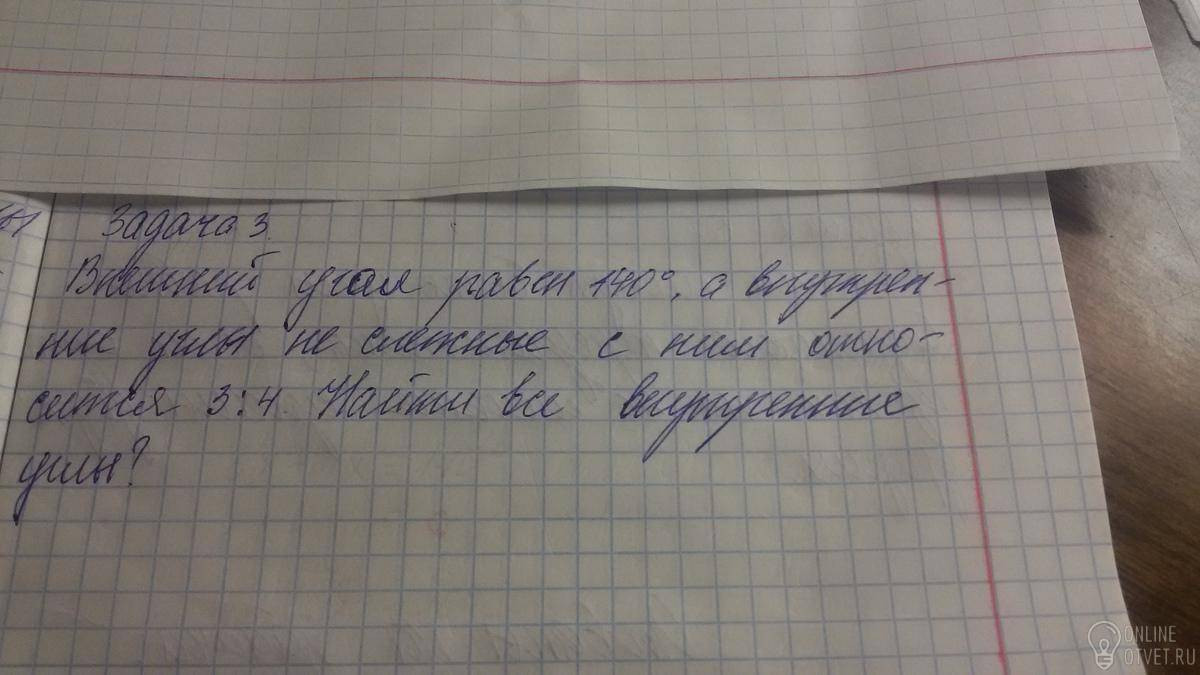 Задача 3.
Внешний угол равен 140°, а внутрен-
ние углы не смежные с ним отно-
сятся 3:4. Найти все внутренние
углы?
ONLINE
OTVET.RU